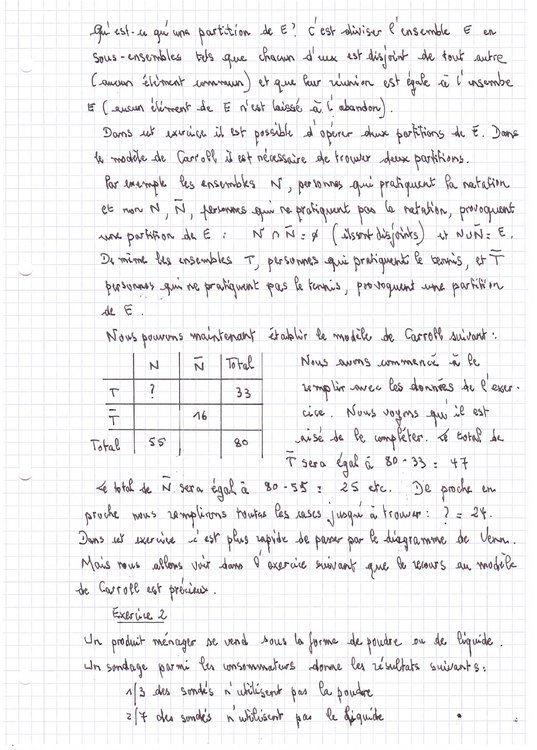 Qu'est-ce qu'une partition de E? C'est diviser l'ensemble E en
sous-ensembles tels que chacun d'eux est disjoint de tout autre
(aucun élément commun) et que leur réunion est égale à l'ensembe
E (aucun élément de E n'est laissé à l'abandon).
Dans cet exercice il est possible d'opérer deux partitions de E. Dans
le modèle de Carroll il est nécessaire de trouver deux partitions.
Par exemple les ensembles N, personnes qui pratiquent la natation
et non N, N̄, personnes qui ne pratiquent pas la natation, provoquent
une partition de E : N ∩ N̄ = ∅ (ils sont disjoints) et N ∪ N̄ = E.
De même les ensembles T, personnes qui pratiquent le tennis, et T̄
personnes qui ne pratiquent pas le tennis, provoquent une partition
de E.
Nous pouvons maintenant établir le modèle de Carroll suivant :
N N̄ Total
T ? 33
T̄ 16
Total 55 80
Nous avons commencé à le
remplir avec les données de l'exer-
cice. Nous voyons qu'il est
aisé de le compléter. Le total de
T̄ sera égal à 80 - 33 = 47
Le total de N̄ sera égal à 80 - 55 = 25 etc. De proche en
proche nous remplirons toutes les cases jusqu'à trouver : ? = 24.
Dans cet exercice c'est plus rapide de passer par le diagramme de Venn.
Mais nous allons voir dans l'exercice suivant que le recours au modèle
de Carroll est précieux.
Exercice 2
Un produit ménager se vend sous la forme de poudre ou de liquide.
Un sondage parmi les consommateurs donne les résultats suivants :
1/3 des sondés n'utilisent pas la poudre
2/7 des sondés n'utilisent pas le liquide